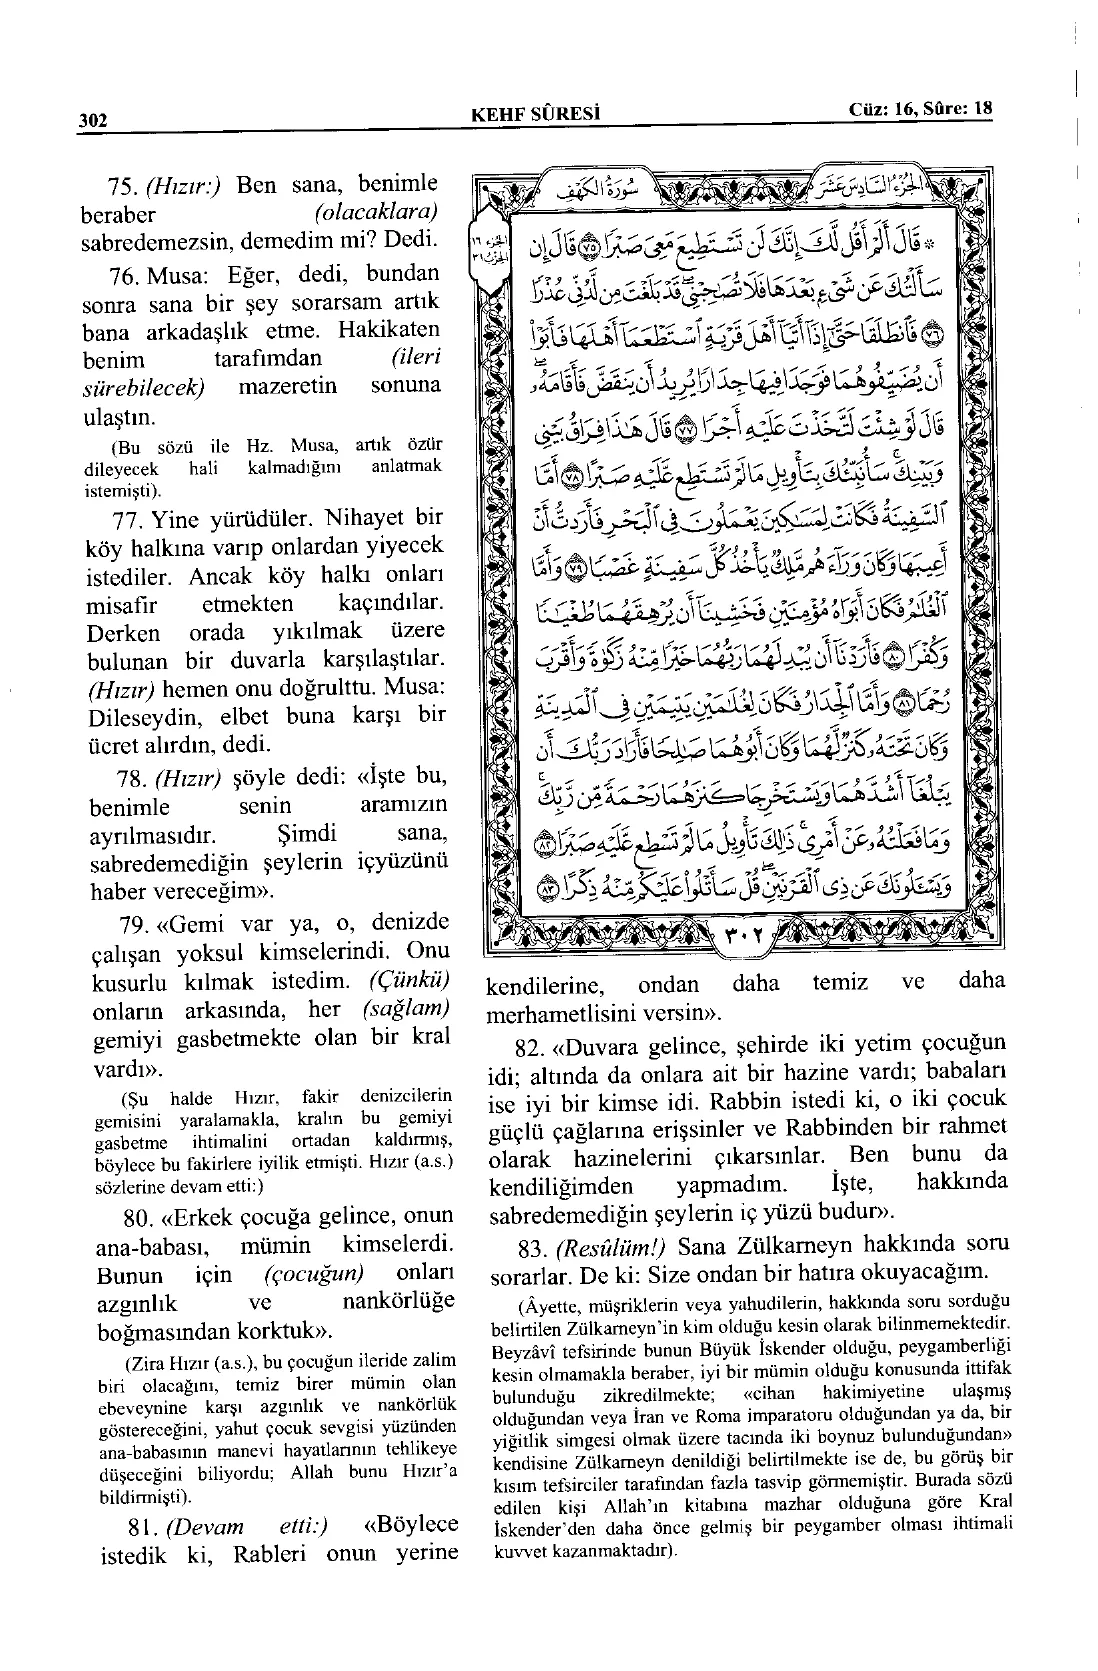 302
KEHF SÛRESİ
Cüz: 16, Sûre: 18
75. (Hızır:) Ben sana, benimle
beraber (olacaklara)
sabredemezsin, demedim mi? Dedi.
76. Musa: Eğer, dedi, bundan
sonra sana bir şey sorarsam artık
bana arkadaşlık etme. Hakikaten
benim tarafımdan (ileri
sürebilecek) mazeretin sonuna
ulaştın.
(Bu sözü ile Hz. Musa, artık özür
dileyecek hali kalmadığını anlatmak
istemişti).
77. Yine yürüdüler. Nihayet bir
köy halkına varıp onlardan yiyecek
istediler. Ancak köy halkı onları
misafir etmekten kaçındılar.
Derken orada yıkılmak üzere
bulunan bir duvarla karşılaştılar.
(Hızır) hemen onu doğrulttu. Musa:
Dileseydin, elbet buna karşı bir
ücret alırdın, dedi.
78. (Hızır) şöyle dedi: «İşte bu,
benimle senin aramızın
ayrılmasıdır. Şimdi sana,
sabredemediğin şeylerin içyüzünü
haber vereceğim».
79. «Gemi var ya, o, denizde
çalışan yoksul kimselerindi. Onu
kusurlu kılmak istedim. (Çünkü)
onların arkasında, her (sağlam)
gemiyi gasbetmekte olan bir kral
vardı».
(Şu halde Hızır, fakir denizcilerin
gemisini yaralamakla, kralın bu gemiyi
gasbetme ihtimalini ortadan kaldırmış,
böylece bu fakirlere iyilik etmişti. Hızır (a.s.)
sözlerine devam etti:)
80. «Erkek çocuğa gelince, onun
ana-babası, mümin kimselerdi.
Bunun için (çocuğun) onları
azgınlık ve nankörlüğe
boğmasından korktuk».
(Zira Hızır (a.s.), bu çocuğun ileride zalim
biri olacağını, temiz birer mümin olan
ebeveynine karşı azgınlık ve nankörlük
göstereceğini, yahut çocuk sevgisi yüzünden
ana-babasının manevi hayatlarının tehlikeye
düşeceğini biliyordu; Allah bunu Hızır'a
bildirmişti).
81. (Devam etti:) «Böylece
istedik ki, Rableri onun yerine
الجزء السادس عشر
سورة الكهف
* قَالَ أَلَمْ أَقُل لَّكَ إِنَّكَ لَن تَسْتَطِيعَ مَعِيَ صَبْرًا ٧٥ قَالَ إِن
سَأَلْتُكَ عَن شَيْءٍ بَعْدَهَا فَلَا تُصَاحِبْنِي قَدْ بَلَغْتَ مِن لَّدُنِّي عُذْرًا
٧٦ فَانطَلَقَا حَتَّىٰ إِذَا أَتَيَا أَهْلَ قَرْيَةٍ اسْتَطْعَمَا أَهْلَهَا فَأَبَوْا
أَن يُضَيِّفُوهُمَا فَوَجَدَا فِيهَا جِدَارًا يُرِيدُ أَن يَنقَضَّ فَأَقَامَهُ
قَالَ لَوْ شِئْتَ لَتَّخَذْتَ عَلَيْهِ أَجْرًا ٧٧ قَالَ هَٰذَا فِرَاقُ بَيْنِي
وَبَيْنِكَ سَأُنَبِّئُكَ بِتَأْوِيلِ مَا لَمْ تَسْتَطِع عَّلَيْهِ صَبْرًا ٧٨ أَمَّا
السَّفِينَةُ فَكَانَتْ لِمَسَاكِينَ يَعْمَلُونَ فِي الْبَحْرِ فَأَرَدتُّ أَنْ
أَعِيبَهَا وَكَانَ وَرَاءَهُم مَّلِكٌ يَأْخُذُ كُلَّ سَفِينَةٍ غَصْبًا ٧٩ وَأَمَّا
الْغُلَامُ فَكَانَ أَبَوَاهُ مُؤْمِنَيْنِ فَخَشِينَا أَن يُرْهِقَهُمَا طُغْيَانًا
وَكُفْرًا ٨٠ فَأَرَدْنَا أَن يُبْدِلَهُمَا رَبُّهُمَا خَيْرًا مِّنْهُ زَكَاةً وَأَقْرَبَ
رُحْمًا ٨١ وَأَمَّا الْجِدَارُ فَكَانَ لِغُلَامَيْنِ يَتِيمَيْنِ فِي الْمَدِينَةِ
وَكَانَ تَحْتَهُ كَنزٌ لَّهُمَا وَكَانَ أَبُوهُمَا صَالِحًا فَأَرَادَ رَبُّكَ أَن
يَبْلُغَا أَشُدَّهُمَا وَيَسْتَخْرِجَا كَنزَهُمَا رَحْمَةً مِّن رَّبِّكَ
وَمَا فَعَلْتُهُ عَنْ أَمْرِي ذَٰلِكَ تَأْوِيلُ مَا لَمْ تَسْطِع عَّلَيْهِ صَبْرًا ٨٢
وَيَسْأَلُونَكَ عَن ذِي الْقَرْنَيْنِ قُلْ سَأَتْلُو عَلَيْكُم مِّنْهُ ذِكْرًا ٨٣
٣٠٢
kendilerine, ondan daha temiz ve daha
merhametlisini versin».
82. «Duvara gelince, şehirde iki yetim çocuğun
idi; altında da onlara ait bir hazine vardı; babaları
ise iyi bir kimse idi. Rabbin istedi ki, o iki çocuk
güçlü çağlarına erişsinler ve Rabbinden bir rahmet
olarak hazinelerini çıkarsınlar. Ben bunu da
kendiliğimden yapmadım. İşte, hakkında
sabredemediğin şeylerin iç yüzü budur».
83. (Resûlüm!) Sana Zülkarneyn hakkında soru
sorarlar. De ki: Size ondan bir hatıra okuyacağım.
(Âyette, müşriklerin veya yahudilerin, hakkında soru sorduğu
belirtilen Zülkarneyn'in kim olduğu kesin olarak bilinmemektedir.
Beyzâvî tefsirinde bunun Büyük İskender olduğu, peygamberliği
kesin olmamakla beraber, iyi bir mümin olduğu konusunda ittifak
bulunduğu zikredilmekte; «cihan hakimiyetine ulaşmış
olduğundan veya İran ve Roma imparatoru olduğundan ya da, bir
yiğitlik simgesi olmak üzere tacında iki boynuz bulunduğundan»
kendisine Zülkarneyn denildiği belirtilmekte ise de, bu görüş bir
kısım tefsirciler tarafından fazla tasvip görmemiştir. Burada sözü
edilen kişi Allah'ın kitabına mazhar olduğuna göre Kral
İskender'den daha önce gelmiş bir peygamber olması ihtimali
kuvvet kazanmaktadır).